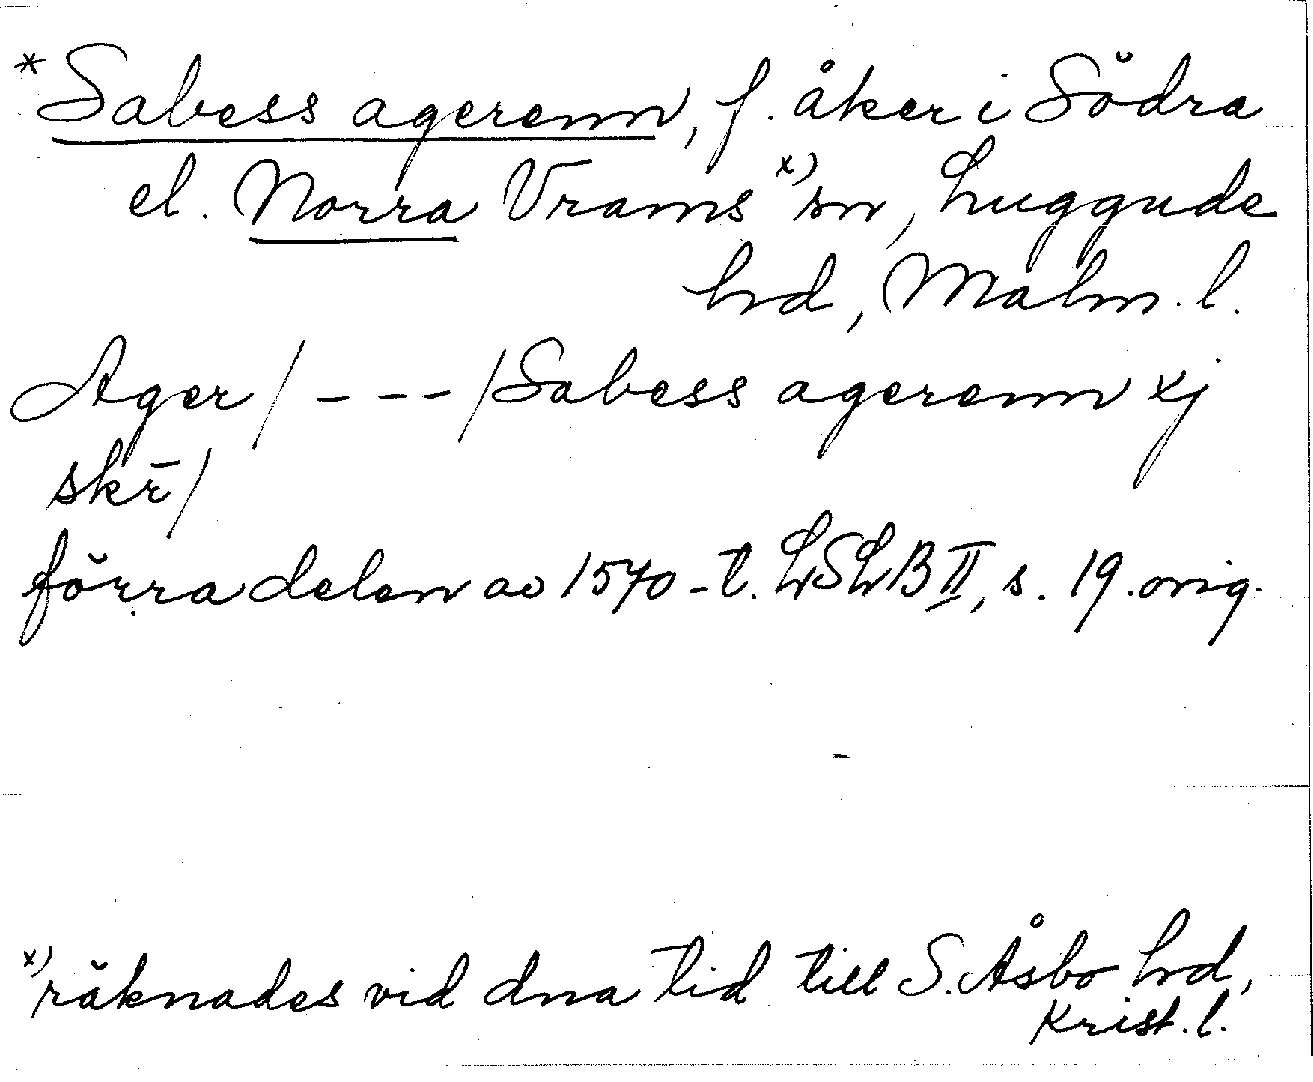 *Sabess agerenn, f. åker i Södra
el. Norra Vrams x) sn, Luggude
hd, Malm. l.
Ager / --- / Sabess agerenn xj
skr̄ /
förra delen av 1570-t. LSLB II, s. 19. orig.
x) räknades vid dna tid till S. Åsbo hd,
Krist. l.